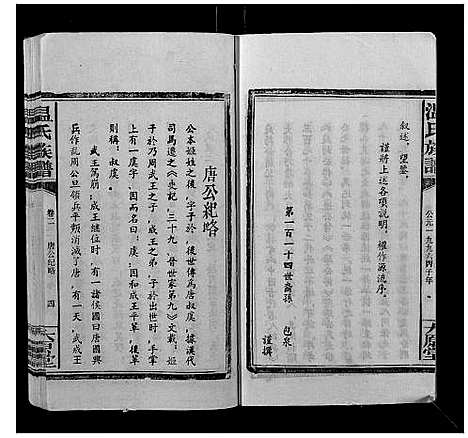 溫氏族譜
公元一九九六丙子年
太原堂
叙述，望鑒。
謹將上述各項說明，權作源流序。
第一百一十四世裔孫 包泉
謹撰
唐公紀略
公本姬姓之後，字子於，後世為唐叔虞。
司馬遷之《史記，三十九，晉世家第九》文載：姬
子於於乃周武王之子，成王之弟。子於出世時，手掌
上有一虞字，因而名曰：虞，因和成王平輩，後單
則稱：叔虞。
武王駕崩，成王繼位時，有一諸侯國曰唐國興
兵作乱周公旦領兵平剿消滅了唐，有一天，武成王
溫氏族譜
卷二 唐公紀略 四
太原堂